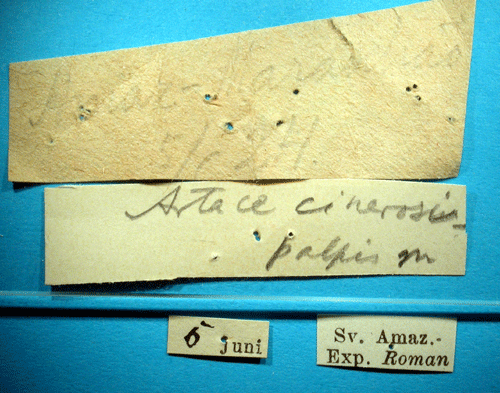 Artace cinerosi-
palpis m
5 juni
Sv. Amaz.-
Exp. Roman